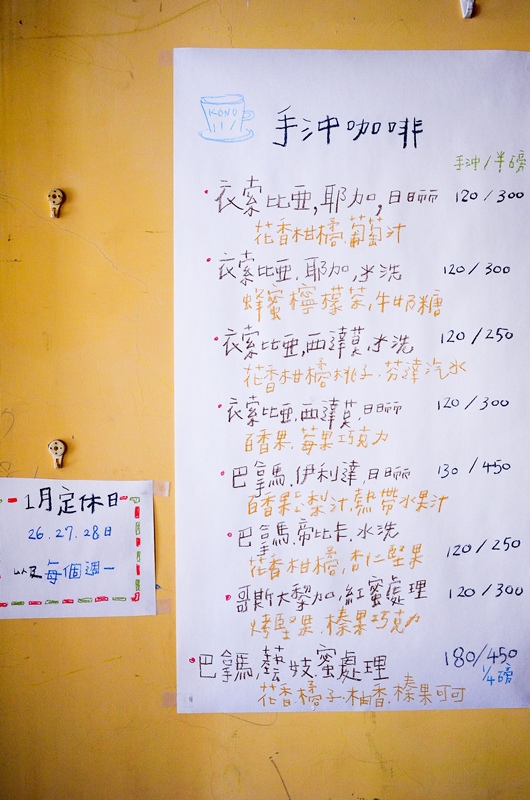 KONO
手沖咖啡
手沖/半磅
衣索比亜,耶加,日曬 120/300
花香柑橘.葡萄汁
衣索比亜.耶加,水洗 120/300
蜂蜜檸檬茶,牛奶糖
衣索比亜,西達莫,水洗 120/250
花香柑橘桃子.芬達汽水
衣索比亜.西達莫.日曬 120/300
百香果.莓果巧克力
巴拿馬.伊利達,日曬 130/450
百香果,梨汁.熱帶水果汁
巴拿馬,帝比卡,水洗 120/250
花香柑橘,杏仁堅果
哥斯大黎加,紅蜜處理 120/300
烤堅果.榛果巧克力
巴拿馬,藝妓.蜜處理 180/450
1/4磅
花香.橘子.柚香.榛果可可
1月定休日
26.27.28日
以及每個週一